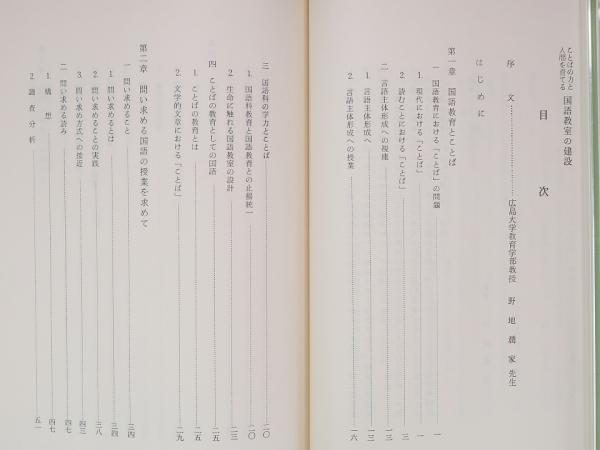 ことばの力と
人間を育てる 国語教室の建設
目次
序文…………広島大学教育学部教授 野地潤家先生
はじめに
第一章 国語教育とことば
一 国語教育における「ことば」の問題…………一
1. 現代における「ことば」…………一
2. 読むことにおける「ことば」…………三
二 言語主体形成への視座…………一三
1. 言語主体形成へ…………一三
2. 言語主体形成への授業…………一六
三 国語科の学力とことば…………二〇
1. 国語科教育と国語教育との止揚統一…………二〇
2. 生命に触れる国語教室の設計…………二三
四 ことばの教育としての国語…………二五
1. ことばの教育とは…………二五
2. 文学的文章における「ことば」…………二九
第二章 問い求める国語の授業を求めて
一 問い求めること…………三四
1. 問い求めるとは…………三四
2. 問い求めることの実践…………三八
3. 問い求め方式への接近…………四三
二 問い求める読み…………四七
1. 構想…………四七
2. 調査分析…………五一